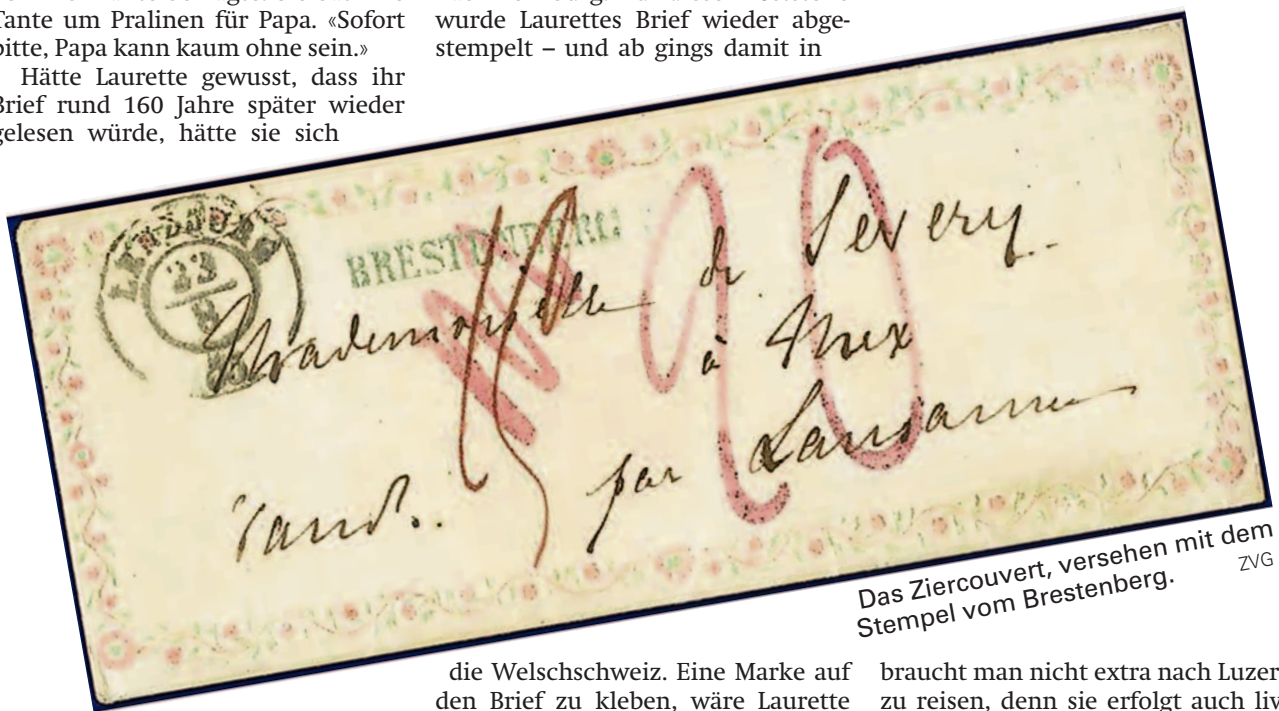 Tante um Pralinen für Papa. «Sofort
bitte, Papa kann kaum ohne sein.»
Hätte Laurette gewusst, dass ihr
Brief rund 160 Jahre später wieder
gelesen würde, hätte sie sich
wurde Laurettes Brief wieder abge-
stempelt – und ab gings damit in
LENZBURG
23
8
BRESTENBERG
Mademoiselle de Severy.
à Mex
par Lausanne
Vaud.
20
Das Ziercouvert, versehen mit dem
Stempel vom Brestenberg.
ZVG
die Welschschweiz. Eine Marke auf
den Brief zu kleben, wäre Laurette
braucht man nicht extra nach Luzer
zu reisen, denn sie erfolgt auch liv